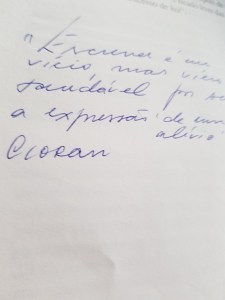 "Escrever é um
vício mas bem
saudável por se
a expressão de um
alívio"
Cioran